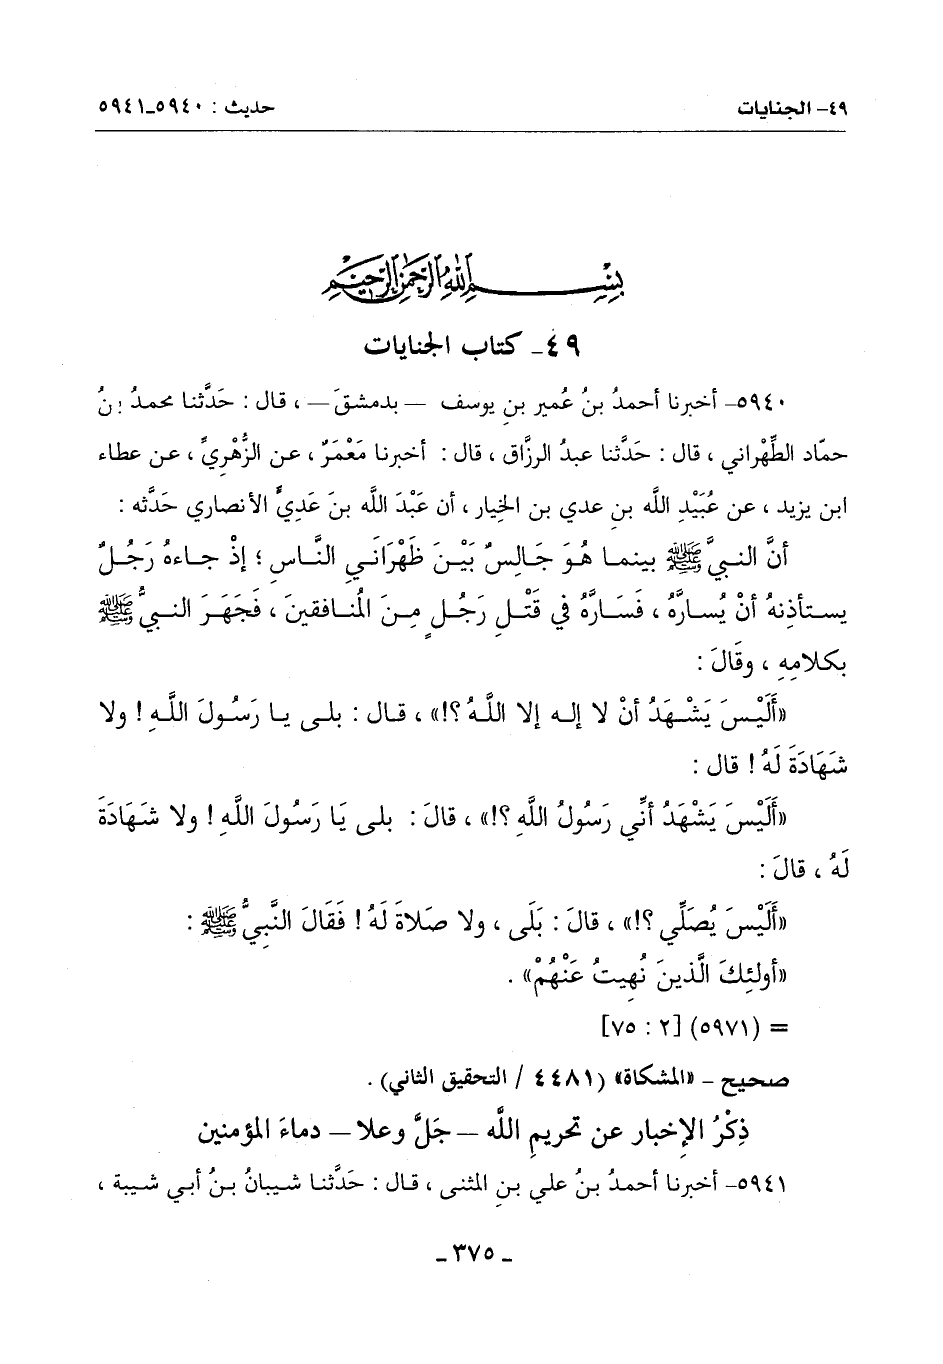 ٤٩- الجنايات حديث : ٥٩٤٠-٥٩٤١
بسم الله الرحمن الرحيم
٤٩- كتاب الجنايات
٥٩٤٠- أخبرنا أحمدُ بنُ عُميرِ بنِ يوسف — بدمشقَ — ، قال : حَدَّثنا محمدُ بنُ
حمّاد الطِّهْراني ، قال : حَدَّثنا عبدُ الرزَّاق ، قال : أخبرنا مَعْمَرٌ ، عن الزُّهْريِّ ، عن عطاء
ابن يزيد ، عن عُبَيْدِ اللَّه بنِ عدي بن الخِيار ، أن عَبْدَ اللَّه بنَ عَديٍّ الأنصاري حَدَّثه :
أنَّ النبيَّ ﷺ بينمـا هُـوَ جَـالِـسٌ بَيْـنَ ظَهْرَانَـيِ النَّـاسِ ؛ إذْ جـاءهُ رَجُـلٌ
يستـأذنهُ أنْ يُسـارَّهُ ، فَسَارَّهُ في قَتْـلِ رَجُـلٍ مِـنَ الْمُنـافقينَ ، فَجَهَرَ النبـيُّ ﷺ
بكلامِهِ ، وقَالَ :
«أَلَيْـسَ يَشْـهَدُ أنْ لا إله إلا اللَّـهُ ؟!» ، قـال : بلـى يـا رَسُـولَ اللَّـهِ ! ولا
شَهَادَةَ لَهُ ! قال :
«أَلَيْسَ يَشْهَدُ أنِّي رَسُولُ اللَّهِ ؟!» ، قالَ : بلى يَا رَسُولَ اللَّهِ ! ولا شَـهَادَةَ
لَهُ ، قالَ :
«أَلَيْسَ يُصَلِّي ؟!» ، قالَ : بَلَى ، ولا صَلاةَ لَهُ ! فَقَالَ النَّبِيُّ ﷺ :
«أولئِكَ الَّذينَ نُهِيتُ عَنْهُمْ» .
= (٥٩٧١) [٢ : ٧٥]
صحيح - «المشكاة» (٤٤٨١ / التحقيق الثاني) .
ذِكْرُ الإخبار عن تحريمِ اللَّه — جَلَّ وعلا — دماءَ المؤمنين
٥٩٤١- أخبرنا أحمـدُ بـنُ علي بـنِ المثنى ، قـال : حَدَّثنا شـيبانُ بـنُ أبـي شيبة ،
- ٣٧٥ -